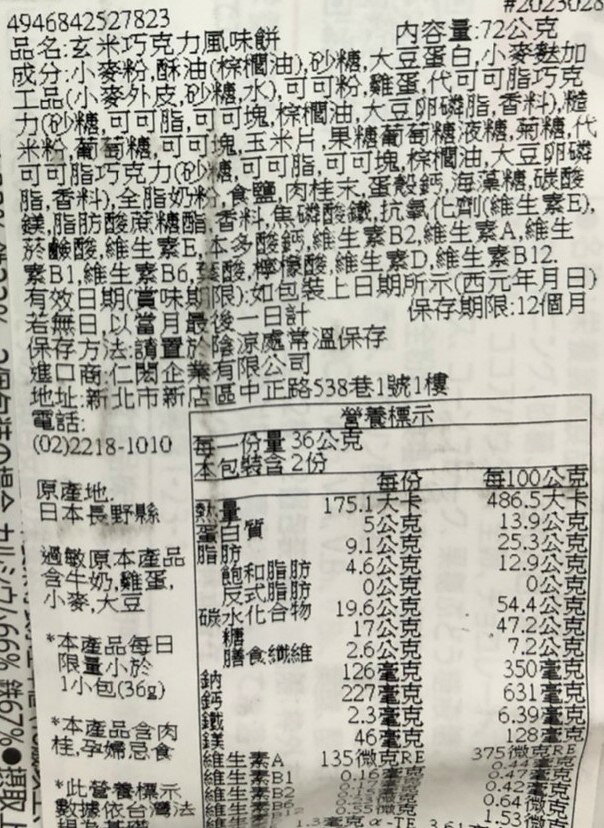 #2023028
4946842527823
品名:玄米巧克力風味餅
內容量:72公克
成分:小麥粉,酥油(棕櫚油),砂糖,大豆蛋白,小麥麩加
工品(小麥外皮,砂糖,水),可可粉,雞蛋,代可可脂巧克
力(砂糖,可可脂,可可塊,棕櫚油,大豆卵磷脂,香料),糙
米粉,葡萄糖,可可塊,玉米片,果糖葡萄糖液糖,菊糖,代
可可脂巧克力(砂糖,可可脂,可可塊,棕櫚油,大豆卵磷
脂,香料),全脂奶粉,食鹽,肉桂末,蛋殼鈣,海藻糖,碳酸
鎂,脂肪酸蔗糖酯,香料,焦磷酸鐵,抗氧化劑(維生素E),
菸鹼酸,維生素E,本多酸鈣,維生素B2,維生素A,維生
素B1,維生素B6,葉酸,檸檬酸,維生素D,維生素B12.
有效日期(賞味期限):如包裝上日期所示(西元年月日)
若無日,以當月最後一日計
保存期限:12個月
保存方法:請置於陰涼處常溫保存
進口商:仁閎企業有限公司
地址:新北市新店區中正路538巷1號1樓
電話:
(02)2218-1010
原產地.
日本長野縣
過敏原本產品
含牛奶,雞蛋,
小麥,大豆
*本產品每日
限量小於
1小包(36g)
*本產品含肉
桂,孕婦忌食
*此營養標示
數據依台灣法
規為基礎
營養標示
每一份量 36公克
本包裝含 2份
每份 每100公克
熱量 175.1大卡 486.5大卡
蛋白質 5公克 13.9公克
脂肪 9.1公克 25.3公克
飽和脂肪 4.6公克 12.9公克
反式脂肪 0公克 0公克
碳水化合物 19.6公克 54.4公克
糖 17公克 47.2公克
膳食纖維 2.6公克 7.2公克
鈉 126毫克 350毫克
鈣 227毫克 631毫克
鐵 2.3毫克 6.39毫克
鎂 46毫克 128毫克
維生素A 135微克RE 375微克RE
維生素B1 0.16毫克 0.44毫克
維生素B2 0.47毫克
維生素B6 0.42毫克
0.64微克
1.3毫克 α-TE 1.53微克